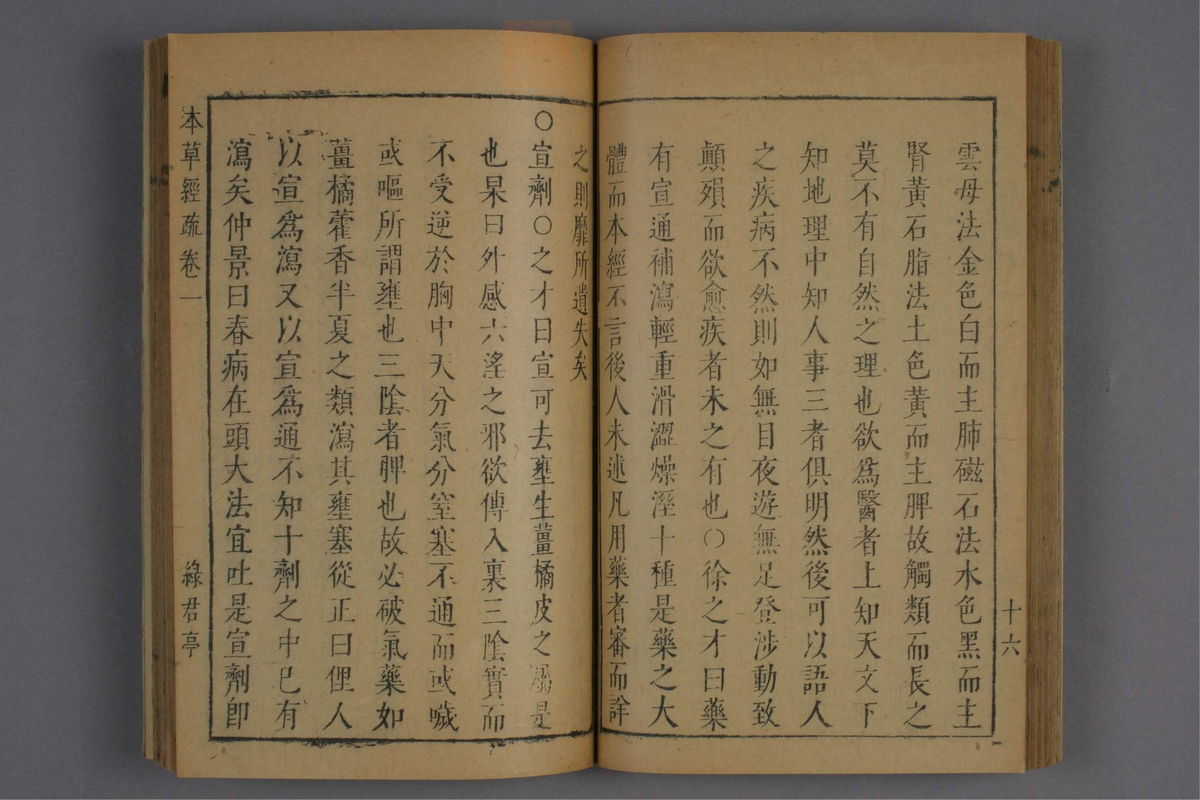 雲母法金色白而主肺磁石法水色黑而主
腎黃石脂法土色黃而主脾故觸類而長之
莫不有自然之理也欲爲醫者上知天文下
知地理中知人事三者俱明然後可以語人
之疾病不然則如無目夜遊無足登涉動致
顛殞而欲愈疾者未之有也〇徐之才曰藥
有宣通補瀉輕重滑澀燥溼十種是藥之大
體而本經不言後人未述凡用藥者審而詳
之則靡所遺失矣
十六
〇宣劑〇之才曰宣可去壅生薑橘皮之屬是
也杲曰外感六淫之邪欲傳入裏三陰實而
不受逆於胸中天分氣分窒塞不通而或噦
或嘔所謂壅也三陰者脾也故必破氣藥如
薑橘藿香半夏之類瀉其壅塞從正曰俚人
以宣爲瀉又以宣爲通不知十劑之中已有
瀉矣仲景曰春病在頭大法宜吐是宣劑卽
本草經疏卷一
綠君亭